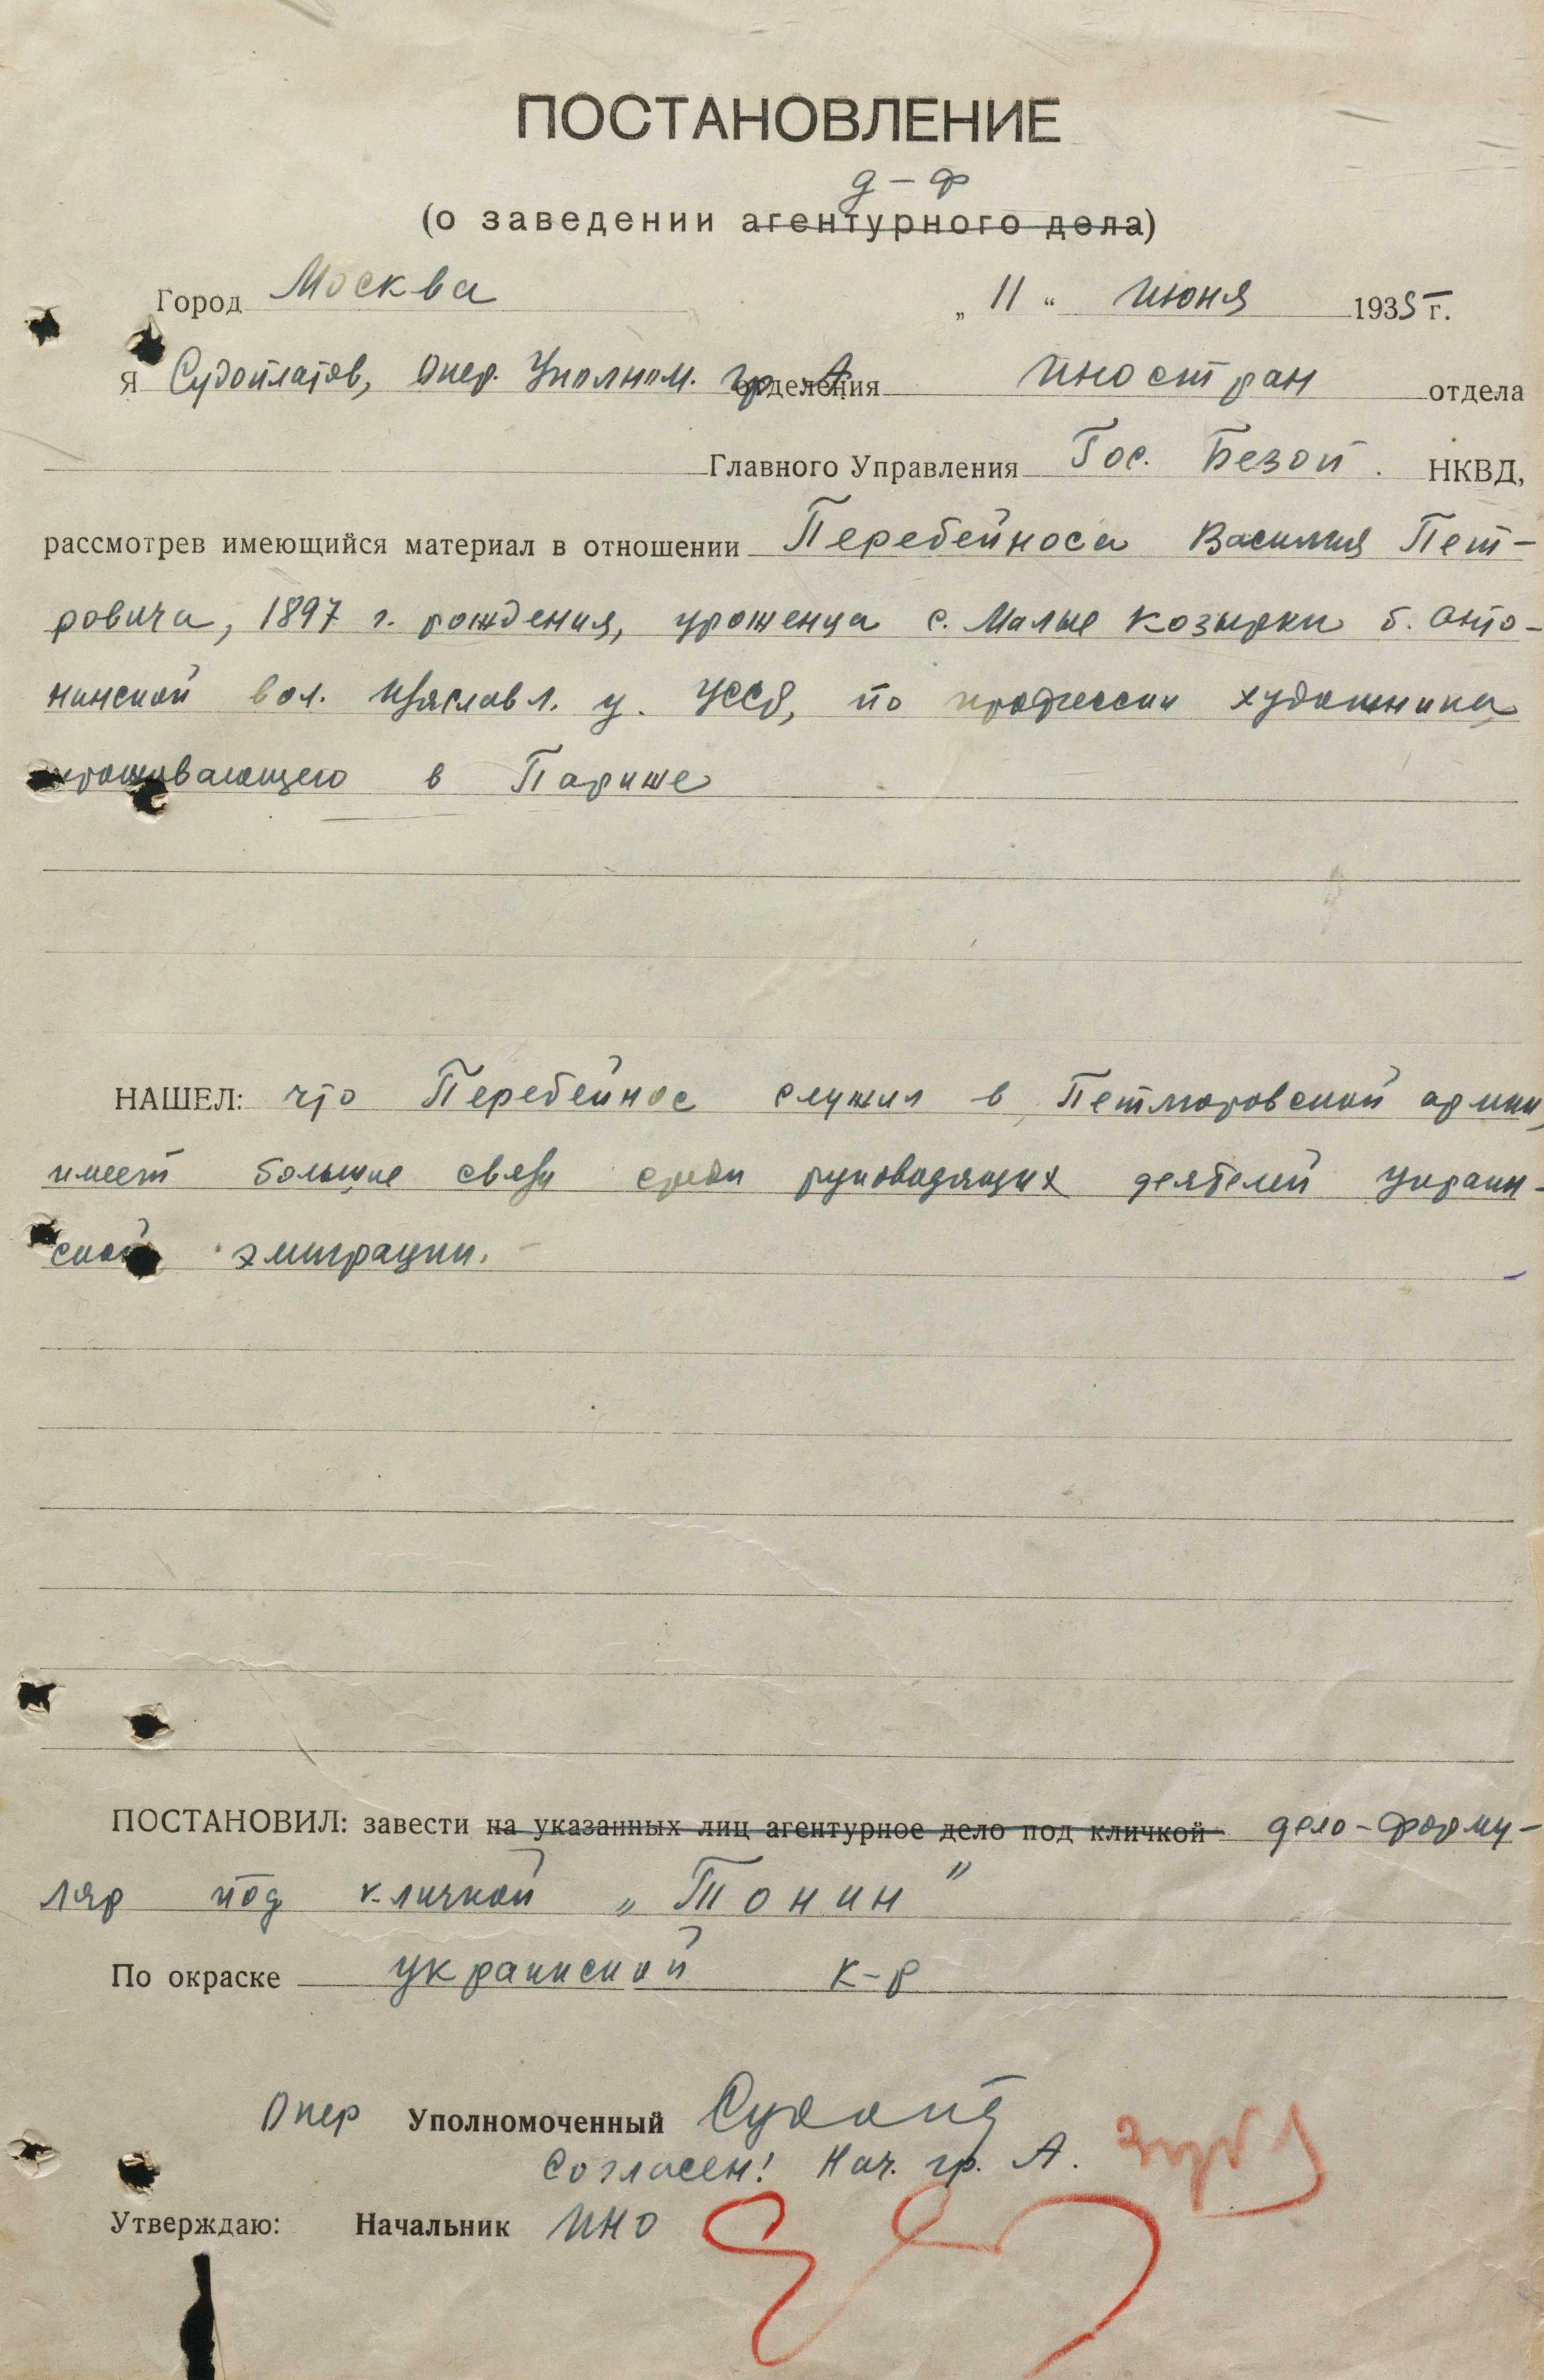 ПОСТАНОВЛЕНИЕ
д-ф
(о заведении агентурного дела)
Город Москва „ 11 “ июня 1935 г.
Я Судоплатов, Опер. Уполном. гр. А отделения Иностран отдела
Главного Управления Гос. Безоп. НКВД,
рассмотрев имеющийся материал в отношении Перебейноса Василия Пет-
ровича, 1897 г. рождения, уроженца с. Малые Козырки б. Анто-
нинской вол. Изяславл. у. УССР, по профессии художника
проживающего в Париже
НАШЕЛ: что Перебейнос служил в Петлюровской армии,
имеет большие связи среди руководящих деятелей украин-
ской эмиграции.
ПОСТАНОВИЛ: завести на указанных лиц агентурное дело под кличкой дело-форму-
ляр под кличкой „Тонин”
По окраске украинской к-р
Опер Уполномоченный Судопл
Согласен! Нач. гр. А.
Утверждаю: Начальник ИНО